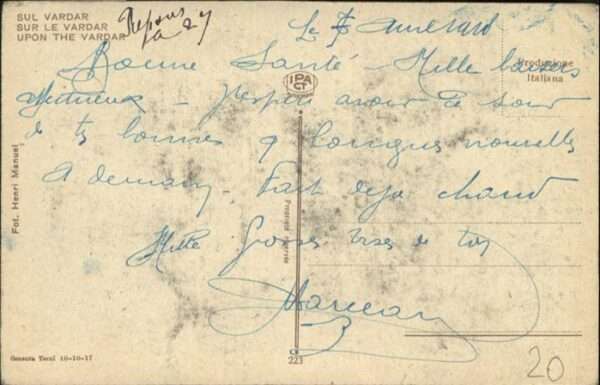 SUL VARDAR
SUR LE VARDAR
UPON THE VARDAR
Le
Bonne Santé - Mille baisers
affectueux - J'espère avoir ce soir
de tes bonnes & longues nouvelles
A demain. Fait déjà chaud
Mille grosses bises de ton
Produzione
Italiana
IPA
CT
Fot. Henri Manuel
Proprietà riservata
Censura Terni 10-10-17
223
20